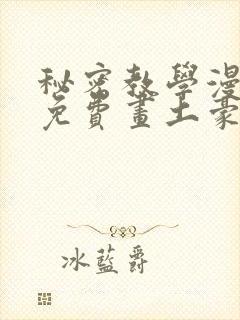 秘密教學漫
免費畫土豪
冰藍爵